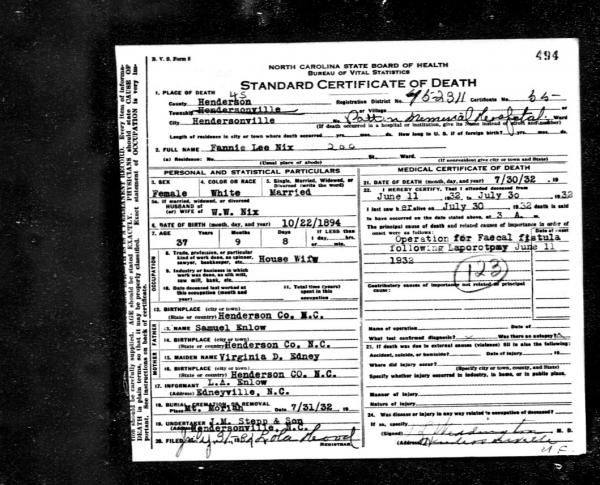 B. V. S. Form 8
494
NORTH CAROLINA STATE BOARD OF HEALTH
BUREAU OF VITAL STATISTICS
STANDARD CERTIFICATE OF DEATH
1. PLACE OF DEATH 45
County Henderson Registration District No. 452311 Certificate No. 55-
Township Hendersonville or Village
City Hendersonville No. Patton Memorial Hospital Ward
(If death occurred in a hospital or institution, give its name instead of street and number)
Length of residence in city or town where death occurred yrs. mos. ds. How long in U. S. if of foreign birth? yrs. mos. ds.
2. FULL NAME Fannie Lee Nix 200
(a) Residence: No. St. Ward.
(Usual place of abode) (If nonresident give city or town and State)
PERSONAL AND STATISTICAL PARTICULARS
3. SEX 4. COLOR OR RACE 5. Single, Married, Widowed, or Divorced (write the word)
Female White Married
5a. If married, widowed, or divorced
HUSBAND of
(or) WIFE of W.W. Nix
6. DATE OF BIRTH (month, day, and year) 10/22/1894
7. AGE Years Months Days If LESS than 1 day, hrs. or min.
37 9 8
OCCUPATION
8. Trade, profession, or particular kind of work done, as spinner, sawyer, bookkeeper, etc. House Wifw
9. Industry or business in which work was done, as silk mill, saw mill, bank, etc.
10. Date deceased last worked at this occupation (month and year)
11. Total time (years) spent in this occupation
12. BIRTHPLACE (city or town)
(State or country) Henderson Co. N.C.
FATHER
13. NAME Samuel Enlow
14. BIRTHPLACE (city or town)
(State or country) Henderson Co. N.C.
MOTHER
15. MAIDEN NAME Virginia D. Edney
16. BIRTHPLACE (city or town)
(State or country) Henderson Co. N.C.
17. INFORMANT L.A. Enlow
(Address) Edneyville, N.C.
18. BURIAL, CREMATION, OR REMOVAL
Place Mt. Moriah Date 7/31/32 19
19. UNDERTAKER J.M. Stepp & Son
(Address) Hendersonville, N.C.
20. FILED July 31
REGISTRAR
MEDICAL CERTIFICATE OF DEATH
21. DATE OF DEATH (month, day, and year) 7/30/32 , 19
22. I HEREBY CERTIFY, That I attended deceased from
June 11 , 1932 to July 30 , 1932
I last saw h er alive on July 30 1932 death is said
to have occurred on the date stated above, at 3 A. m.
The principal cause of death and related causes of importance in order of onset were as follows: Date of onset
Operation for Faecal fistula
following Laporotpmy June 11
1932
123
Contributory causes of importance not related to principal cause:
Name of operation Date of
What test confirmed diagnosis? Was there an autopsy?
23. If death was due to external causes (violence) fill in also the following:
Accident, suicide, or homicide? Date of injury 19
Where did injury occur?
(Specify city or town, county, and State)
Specify whether injury occurred in industry, in home, or in public place.
Manner of injury
Nature of injury
24. Was disease or injury in any way related to occupation of deceased?
If so, specify
(Signed) M. D.
(Address) Hendersonville